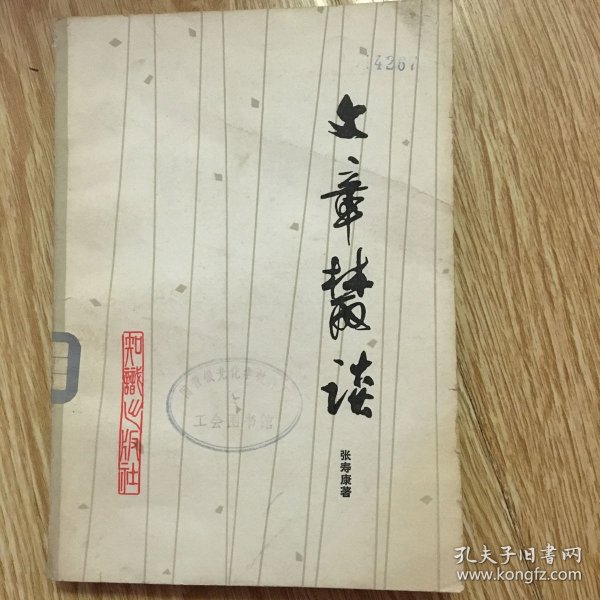 4267
文章丛谈
张寿康著
知识出版社
工会图书馆
孔夫子旧书网
www.kongfz.com